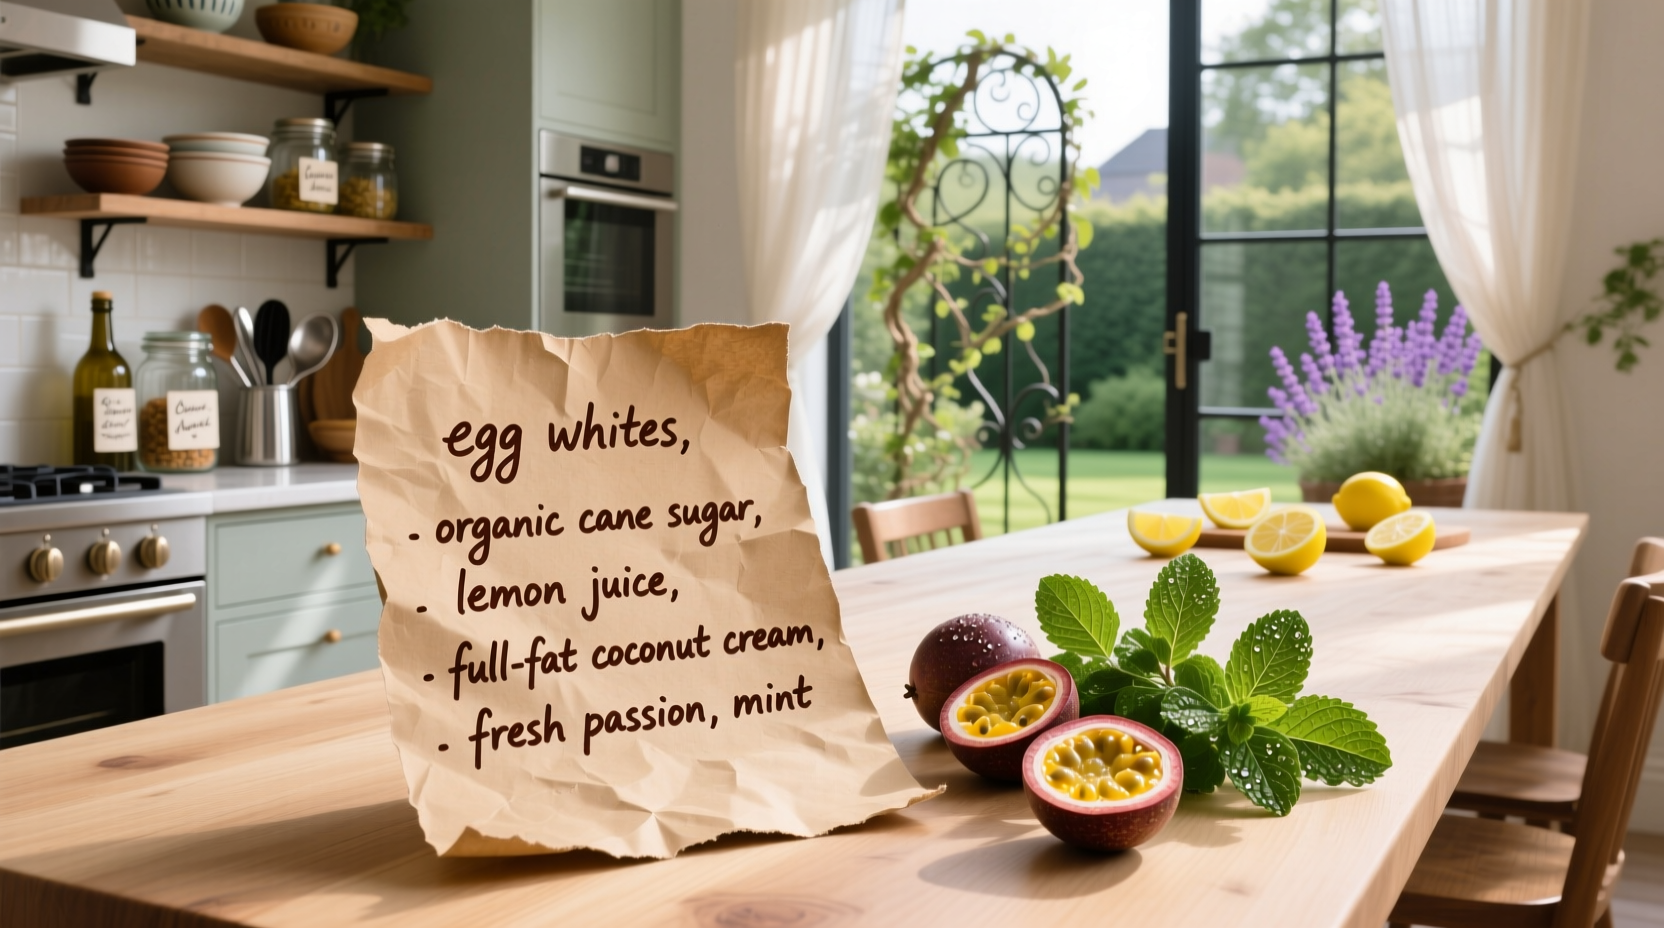 egg whites,
- organic cane sugar,
- lemon juice,
- full-fat coconut cream,
- fresh passion, mint